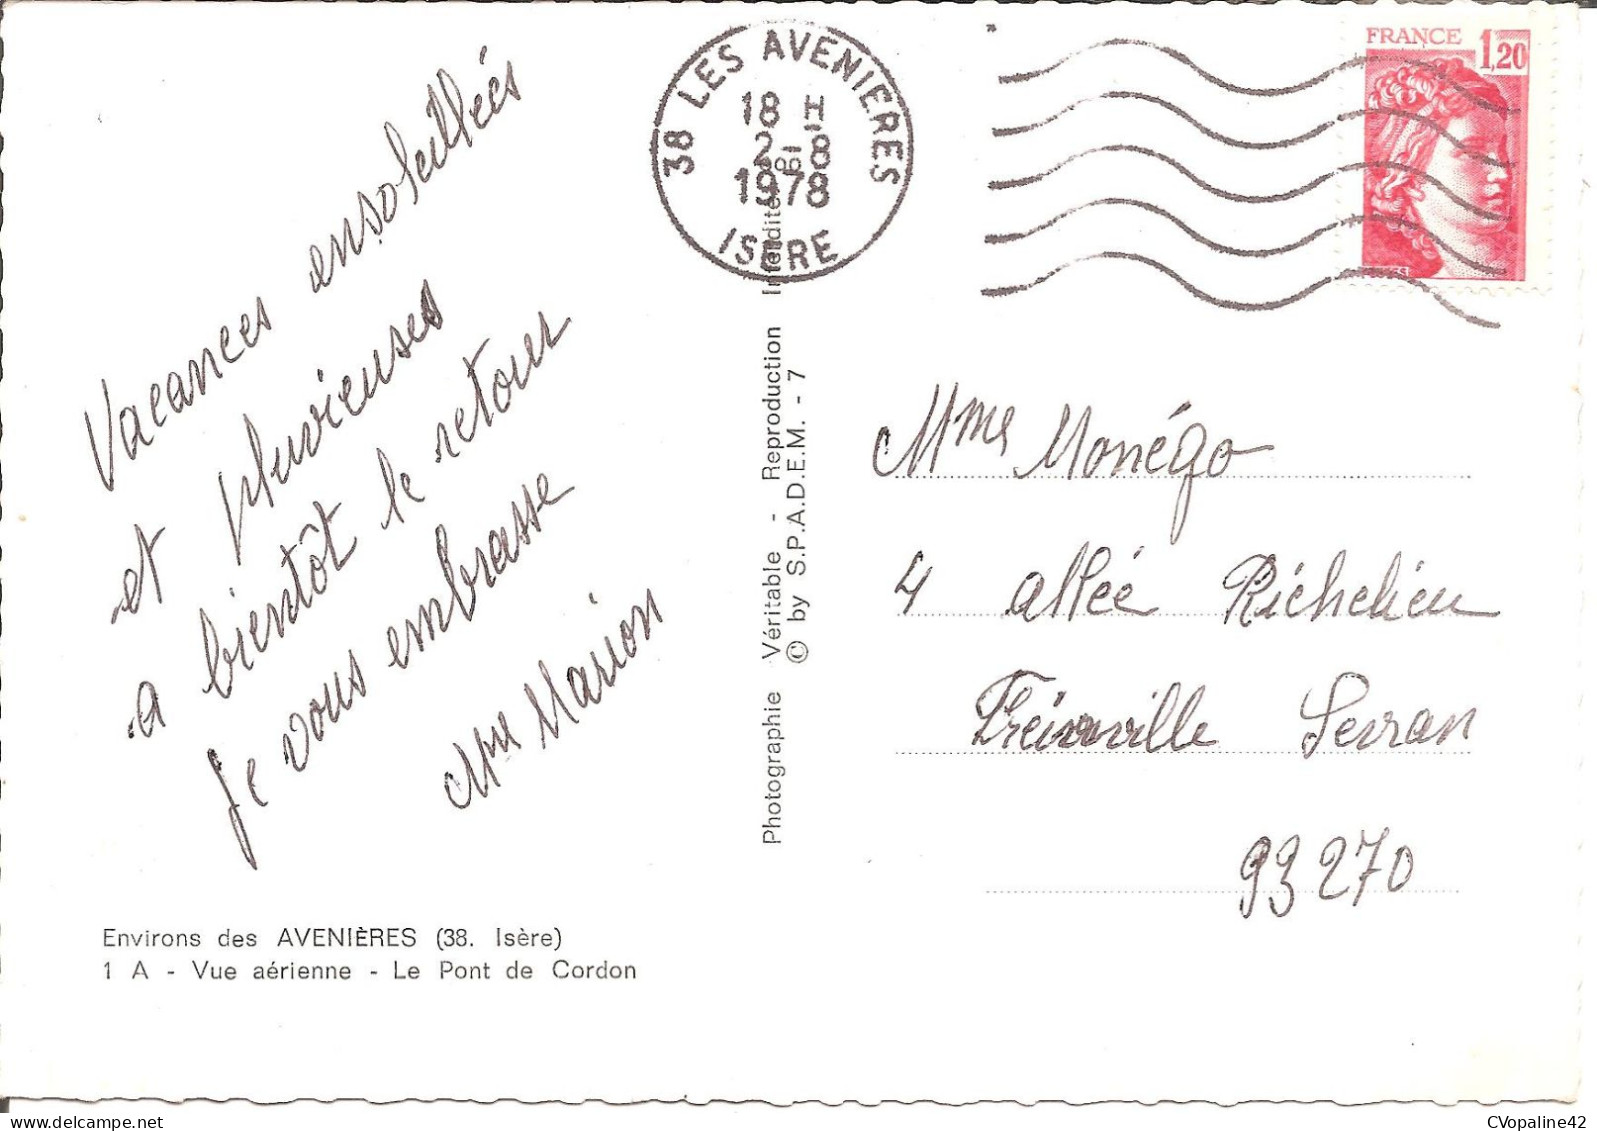 Vacances ensoleillées
et pluvieuses
a bientôt le retour
Je vous embrasse
Mme Marion
Environs des AVENIÈRES (38. Isère)
1 A - Vue aérienne - Le Pont de Cordon
Photographie Véritable - Reproduction Interdite
© by S.P.A.D.E.M. - 7
38 LES AVENIERES
18 H
2-8
1978
ISERE
FRANCE 1,20
Mme Monégo
4 allée Richelieu
Freinville Sevran
93270
CVopaline42